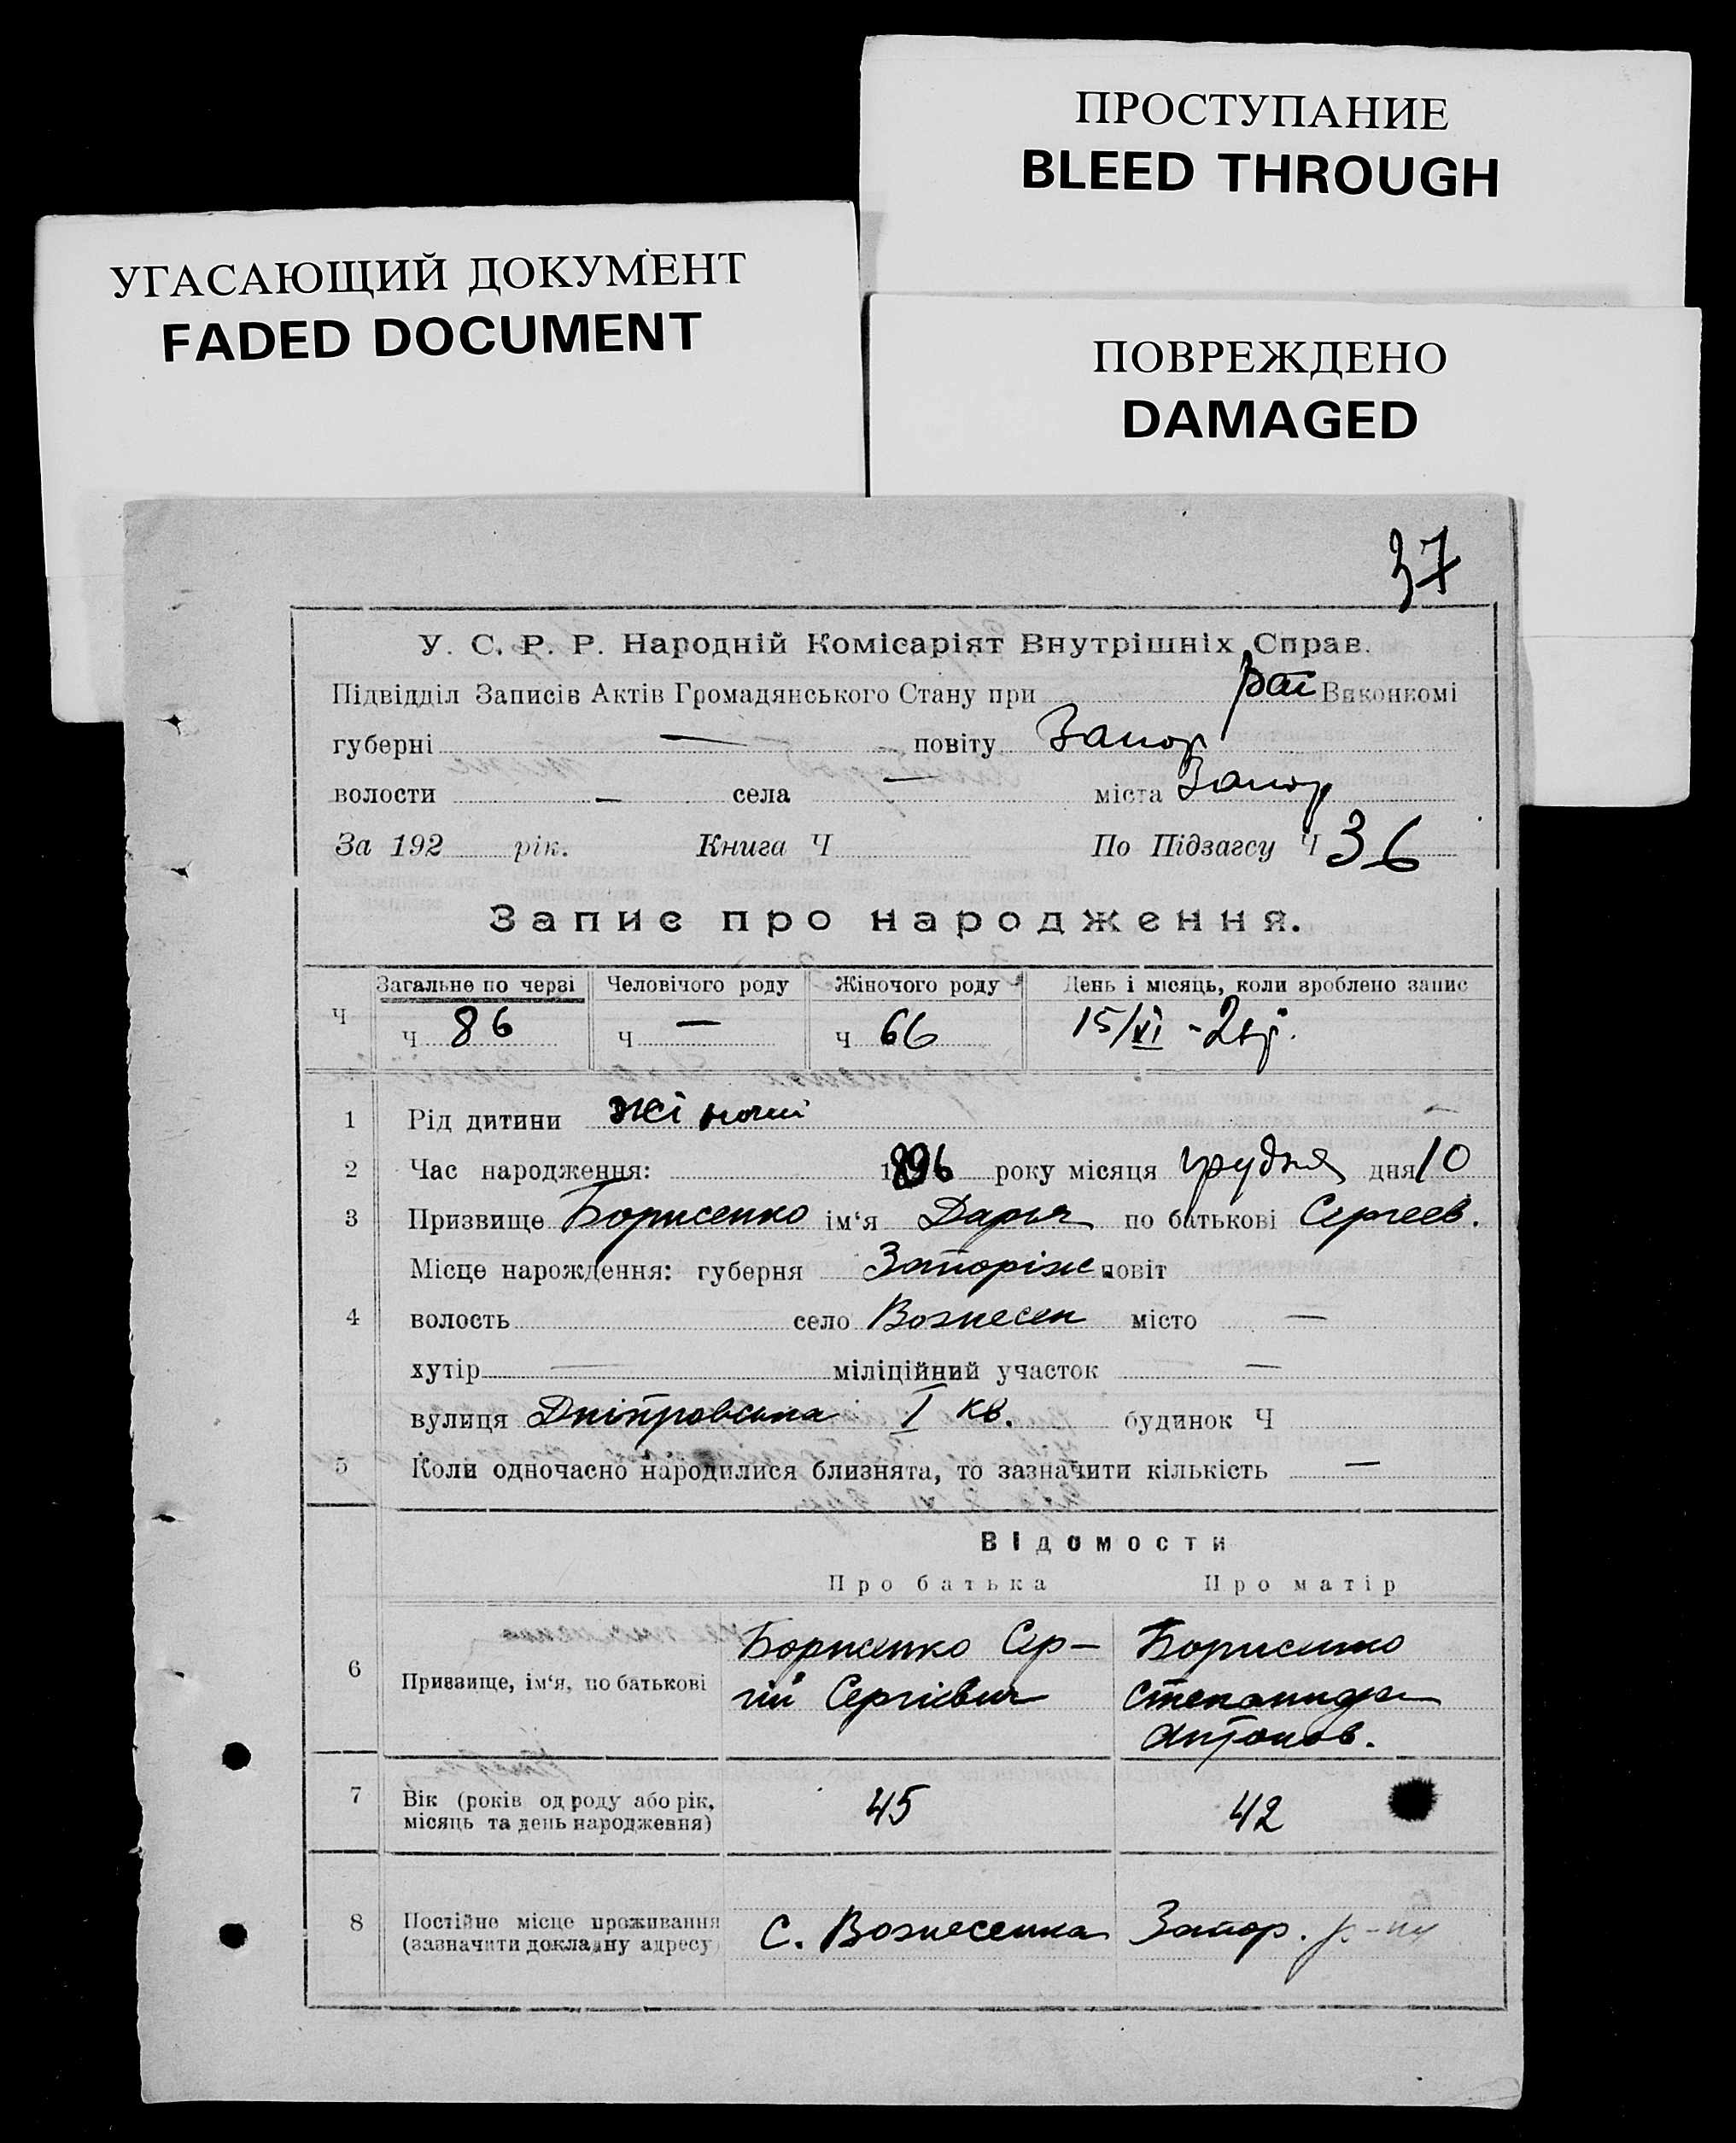 ПРОСТУПАНИЕ
BLEED THROUGH
УГАСАЮЩИЙ ДОКУМЕНТ
FADED DOCUMENT
ПОВРЕЖДЕНО
DAMAGED
37
У. С. Р. Р. Народній Комісаріят Внутрішніх Справ.
Підвідділ Записів Актів Громадянського Стану при рай Виконкомі
губерні — повіту Запор
волости — села — міста Запор
За 192 рік. Книга Ч По Підзагсу Ч 36
Запис про народження.
Загальне по черзі Человічого роду Жіночого роду День і місяць, коли зроблено запис
Ч Ч 86 Ч — Ч 66 15/XI
1 Рід дитини жіночий
2 Час народження: 1896 року місяця грудня дня 10
3 Призвище Борисенко ім‘я Дарья по батькові Сергеев.
Місце нарождення: губерня Запоріж повіт
4 волость село Вознесен місто —
хутір — міліційний участок —
вулиця Дніпровська I кв. будинок Ч
5 Коли одночасно народилися близнята, то зазначити кількість —
Відомости
Про батька Про матір
Борисенко Сер- Борисенко
6 Призвище, ім‘я, по батькові гій Сергієвич Степанида
Антонов.
7 Вік (років од роду або рік, 45 42
місяць та день народження)
8 Постійне місце проживання с. Вознесенка Запор. р-ну
(зазначити докладну адресу)